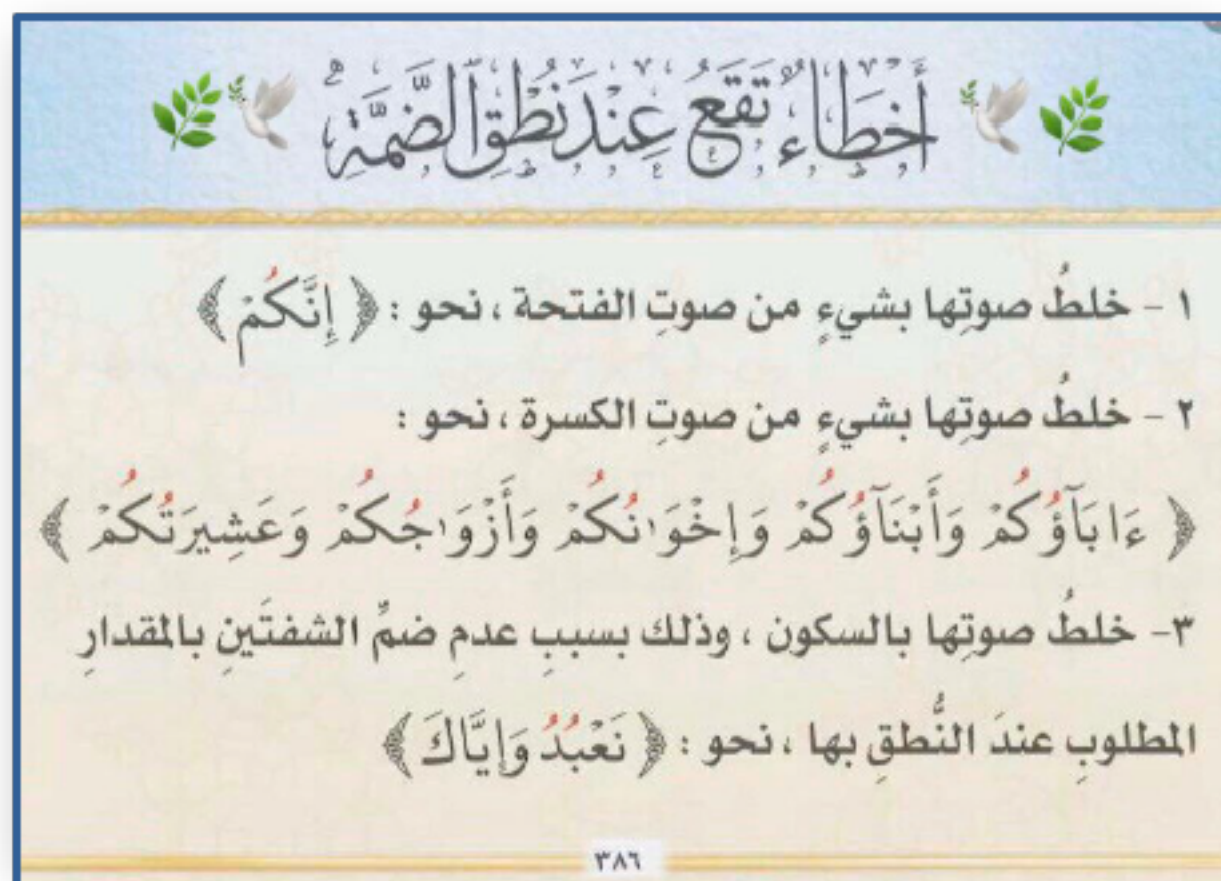 أَخطَاءٌ تَقَعُ عِندَ نُطْقِ الضَّمَّةِ
١ - خلطُ صوتِها بشيءٍ من صوتِ الفتحة ، نحو : ﴿ إِنَّكُمْ ﴾
٢ - خلطُ صوتِها بشيءٍ من صوتِ الكسرة ، نحو :
﴿ ءَابَآؤُكُمْ وَأَبْنَآؤُكُمْ وَإِخْوَٰنُكُمْ وَأَزْوَٰجُكُمْ وَعَشِيرَتُكُمْ ﴾
٣- خلطُ صوتِها بالسكون ، وذلك بسببِ عدمِ ضمِّ الشفتَينِ بالمقدارِ
المطلوبِ عندَ النُّطقِ بها ، نحو : ﴿ نَعْبُدُ وَإِيَّاكَ ﴾
٣٨٦